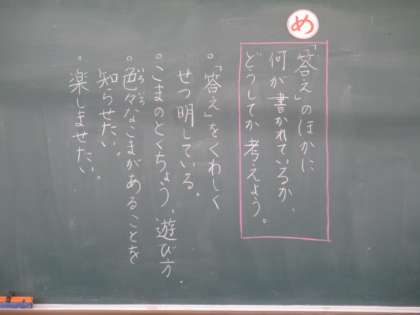 め
「答え」のほかに
何が書かれているか、
どうしてか考えよう。
。「答え」をくわしく
せつ明している。
。こまのとくちょう、遊び方、
。色々なこまがあることを
いろいろ
知らせたい。
。楽しませたい。